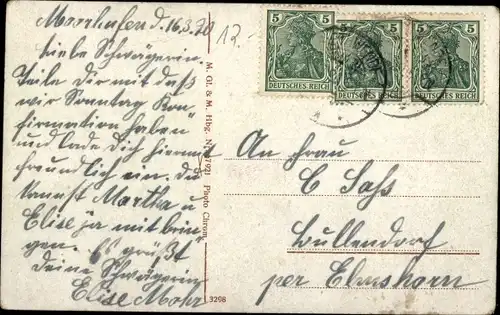 Moorhusen d. 16.3.20
Liebe Schwägerin
Teile Dir mit daß
wir Sonntag Kon-
firmation haben
und lade Dich hiermit
freundlich ein. Du
kannst Martha u
Elise ja mit brin
gen. Es grüßt
Deine Schwägerin
Elise Mohr
12.-
M. Gl. & M. Hbg. Photo Chrom
3298
5 5
DEUTSCHES REICH
5
DEUTSCHES REICH
5
DEUTSCHES REICH
An Frau
C Saß
Bullendorf
per Elmshorn